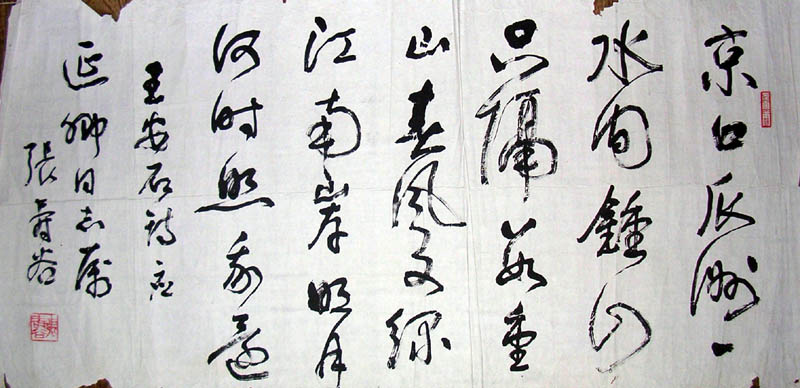 京口瓜洲一
水间鍾山
只隔数重
山春风又绿
江南岸明月
何时照我还
王安石诗应
延卿同志属
張寿谷